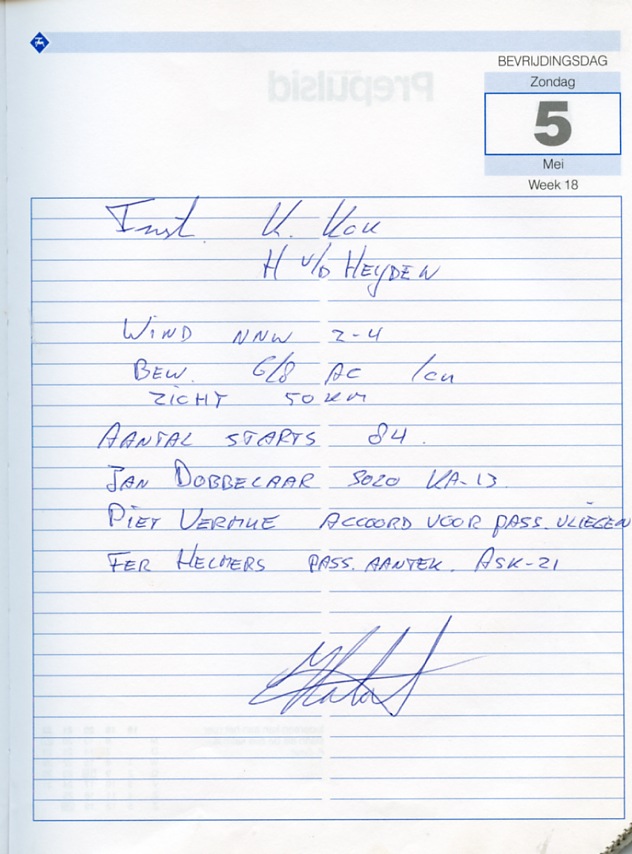 BEVRIJDINGSDAG
Zondag
5
Mei
Week 18
Prepulsid
Inst. K. Kok
H v/d HEYDEN
WIND NNW 2-4
BEW. 6/8 AC /cu
ZICHT 50 KM
AANTAL STARTS 84.
JAN DOBBELAAR SOLO KA-13.
PIET VERMUE ACCOORD VOOR PASS. VLIEGEN
FER HELMERS PASS. AANTEK. ASK-21